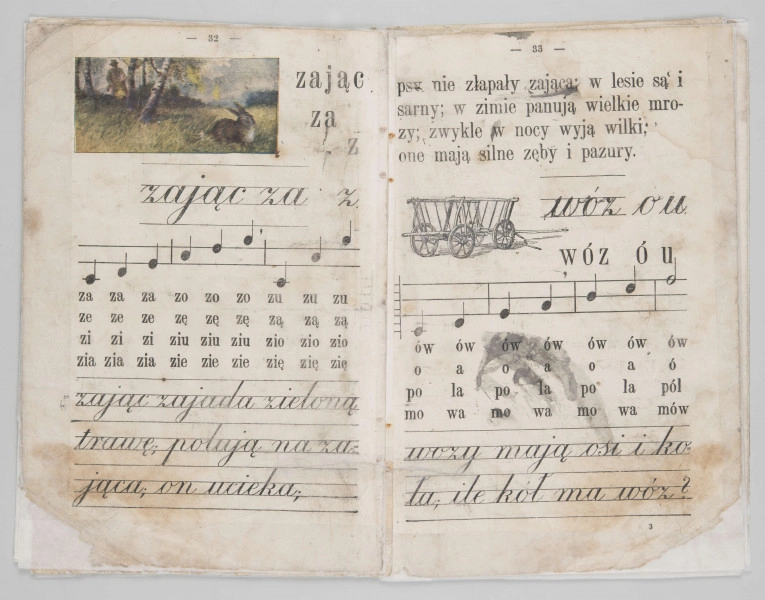 — 32 —
zając
za
z
zając za z
za za za zo zo zo zu zu zu
ze ze ze zę zę zę zą zą zą
zi zi zi ziu ziu ziu zio zio zio
zia zia zia zie zie zie zię zię zię
zając zajada zieloną
trawę; polują na za-
jąca; on ucieka;
— 33 —
psy nie złapały zająca; w lesie są i
sarny; w zimie panują wielkie mro-
zy; zwykle w nocy wyją wilki;
one mają silne zęby i pazury.
wóz ó u
wóz ó u
ów ów ów ów ów ów ów
o a o a o a ó
po la po la po la pól
mo wa mo wa mo wa mów
wozy mają osi i ko-
ła; ile kół ma wóz?
3